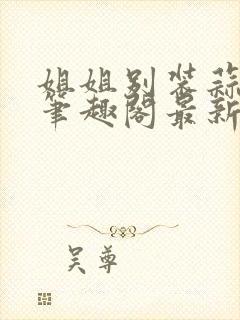 姐姐别装蒜
笔趣阁最新
吴尊